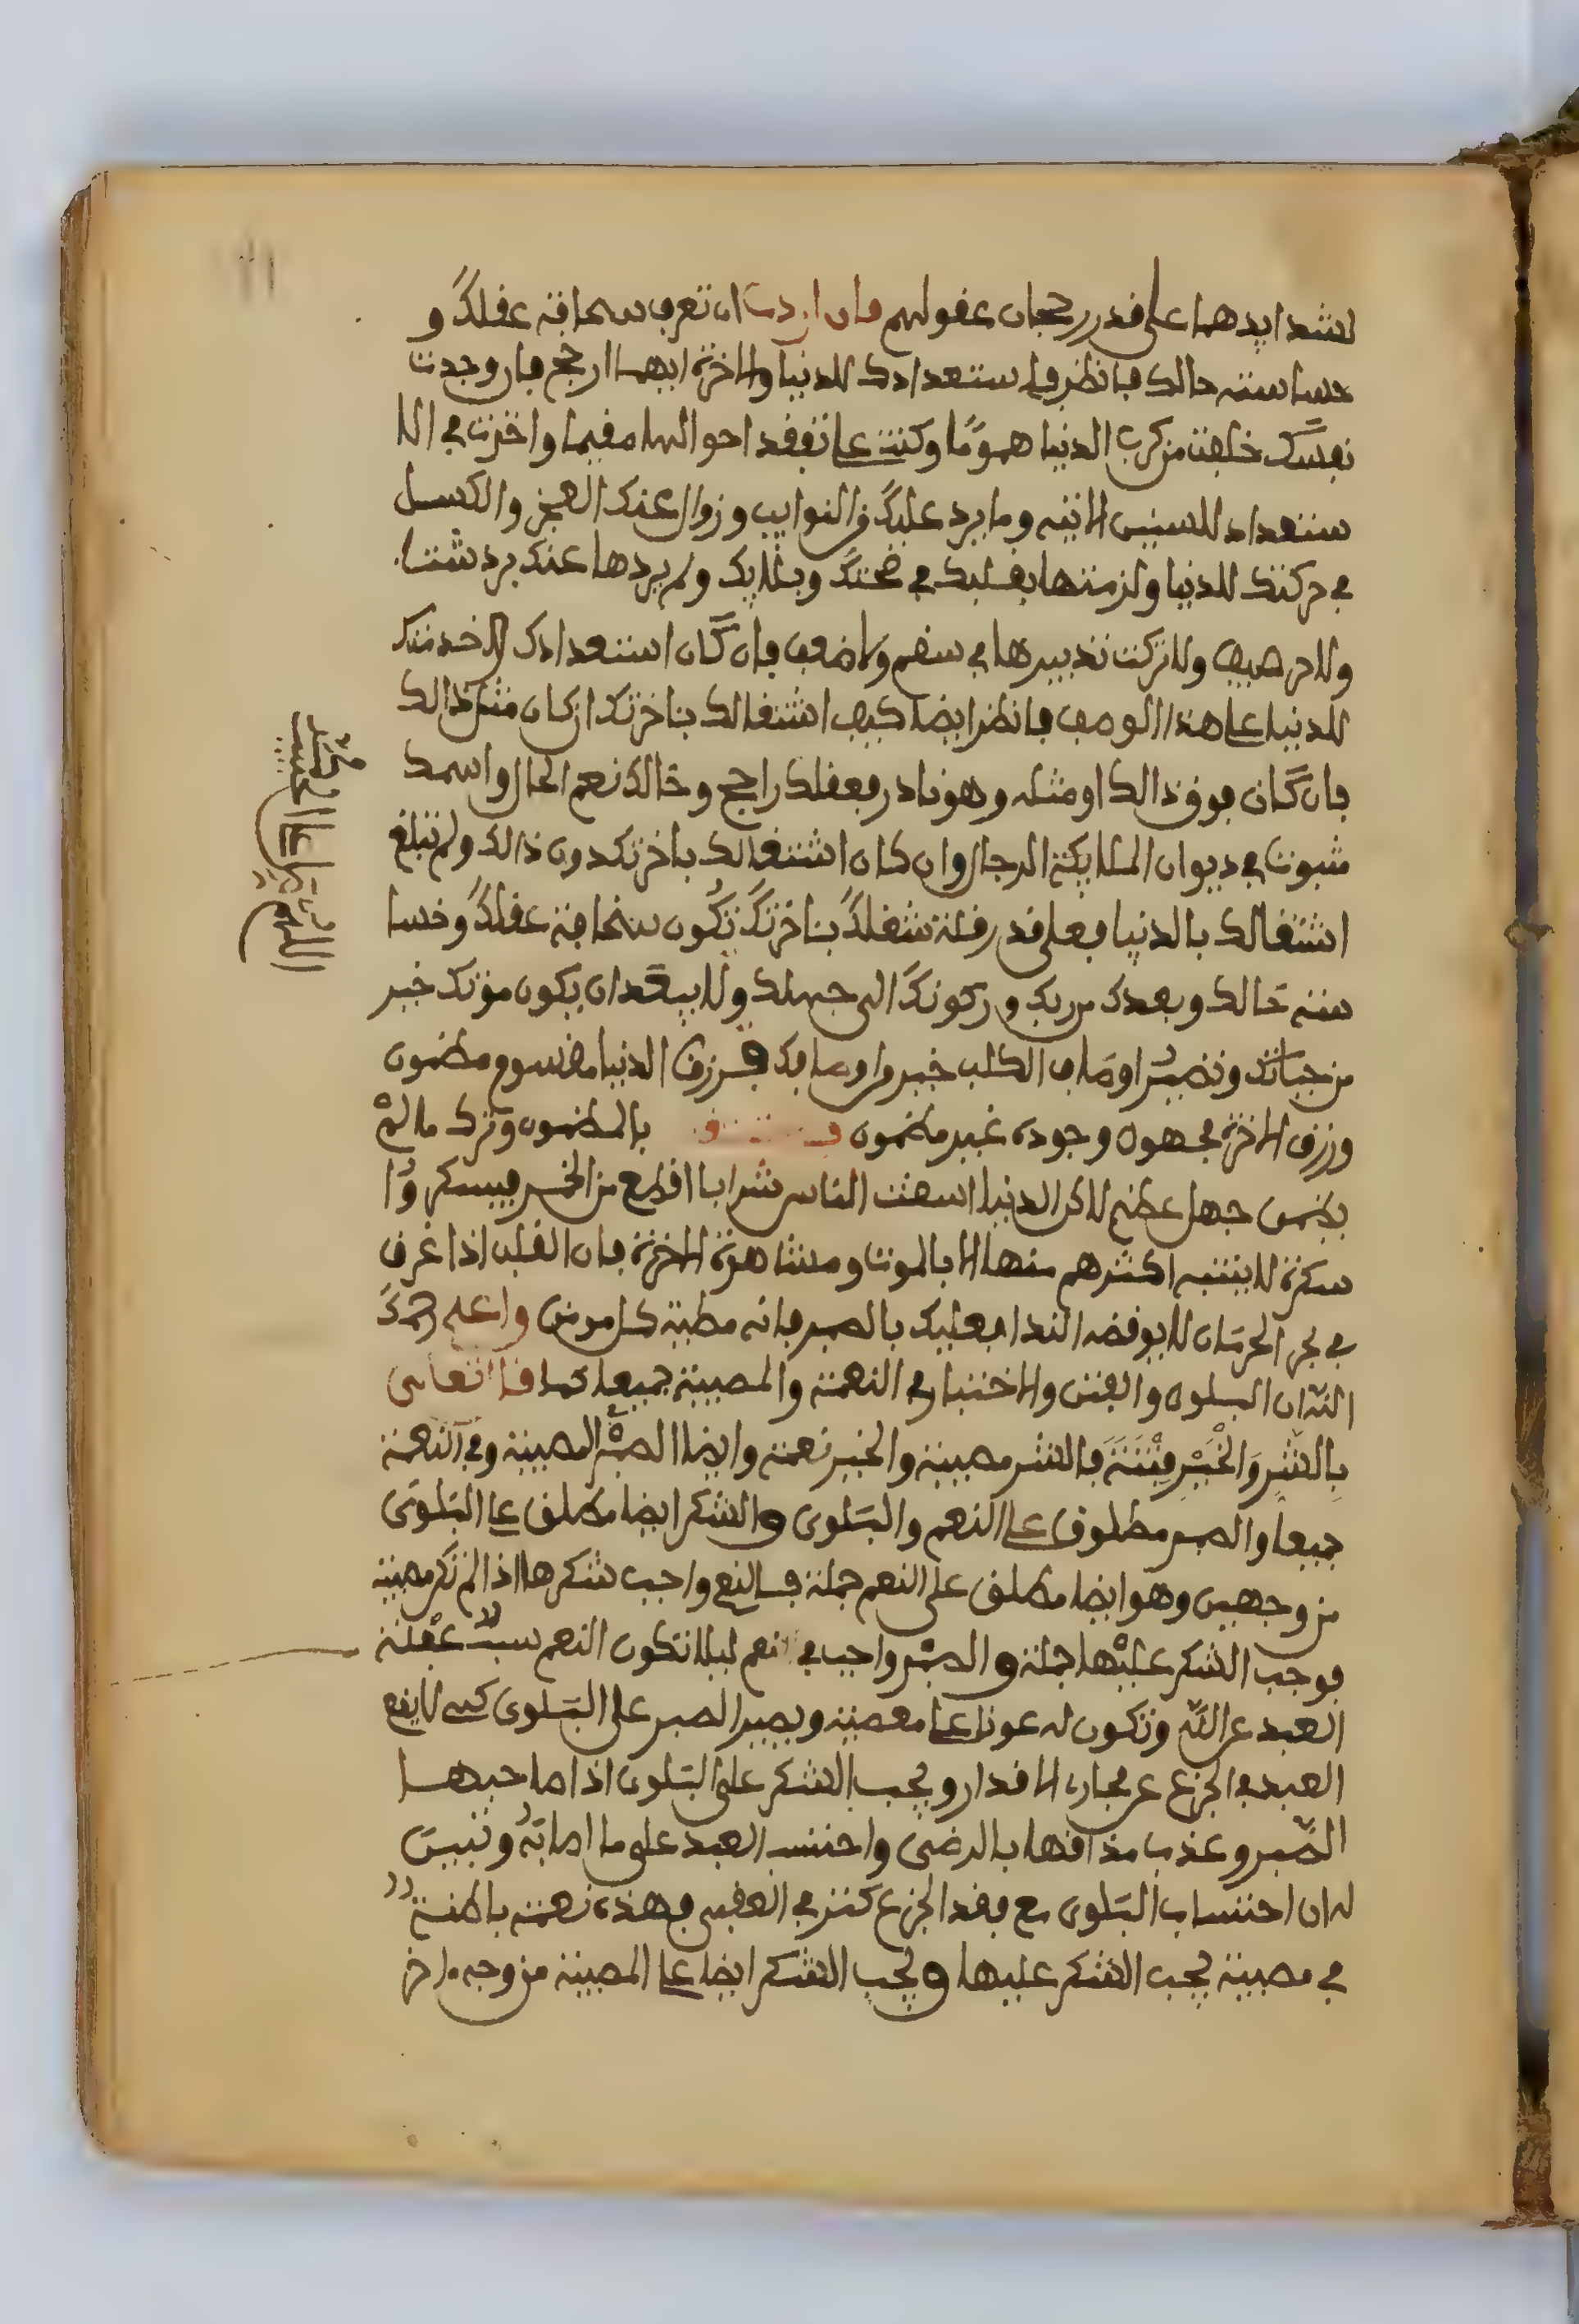 لشدايدهما على قدر رجحان عقولهم فان اردت ان تعرف سخافة عقلك و
خساسته حالك فانظر في استعدادك للدنيا والاخرة ايهما ارجح فان وجدت
نفسك خلفت من كرب الدنيا هموما وكنت على تفقد احوالها مقيما واخذت في الا
ستعداد للسنين الاتية وما يرد عليك من النوايب وزوال عنك العجز والكسل
في حركتك للدنيا ولزمتها بقلبك في صحتك وبلايك ولم يردها عنك برد شتاء
ولا حر صيف ولا تركت تدبيرها في سقم ولا ضعف فان كان استعدادك لاخدمتك
للدنيا على هذا الوصف فانظر ايضا كيف اشتغالك بئاخرتك ان كان مثل ذالك
فان كان فوق ذالك او مثله وهو نادر فعقلك راجح وحالك نعم الحال واسمك
مثبوت في ديوان الملايكة الرجال وان كان اشتغالك باخرتك دون ذالك ولم تبلغ
اشتغالك بالدنيا فعلى قدر قلة شغلك بئاخرتك تكون سخافة عقلك وخسا
سته حالك وبعدك من ربك وركونك الى جهلك ولا يبعد ان يكون موتك خير
من حياتك وتصير اوصاف الكلب خير من اوصافك فرزق الدنيا مقسوم مضمون
ورزق الاخرة مجهول وجوده غير مضمون بالمضمون وترك ما لم
يضمن جهل عظيم لاكن الدنيا اسقت الناس شرابا اقطع من الخمر فيسكروا
سكرة لا ينتبه اكثرهم منها الا بالموت ومشاهرة الاخرة فان القلب اذا غرق
في بحر الحرمان لا يوقضه الندا فعليك بالصبر فانه مطية كل مومن واعلم رحمك
الله ان البلوى والفتن والاختبار في النعمة والمصيبة جميعا كما قال تعالى
بالشر والخير فتنة فالشر مصيبة والخير نعمة وايضا الصبر في المصيبة وفي النعمة
جميعا والصبر مطلوق على النعم والبلوى والشكر ايضا مطلق على البلوى
من وجهين وهو ايضا مطلق على النعم جملة فالنعم واجب شكرها اذ الم تكن مصيبة
فوجب الشكر عليها جملة والصبر واجب في نعم ليلا تكون النعم سببا لغفلة
العبد عن الله وتكون له عونا على معصية ويصير الصبر على البلوى كي لا يقع
العبد في الجزع عن مجار الاقدار ويجب الشكر على البلوى اذا صاحبها
الصبر وعذب مذاقها بالرضى واحتسب العبد على ما اصابه وتبين
له ان احتساب البلوى مع فقد الجزع كنز في العقبى فهذه نعمة باطنة
في مصيبة يجب الشكر عليها ويجب الشكر ايضا على المصيبة من وجه اخر